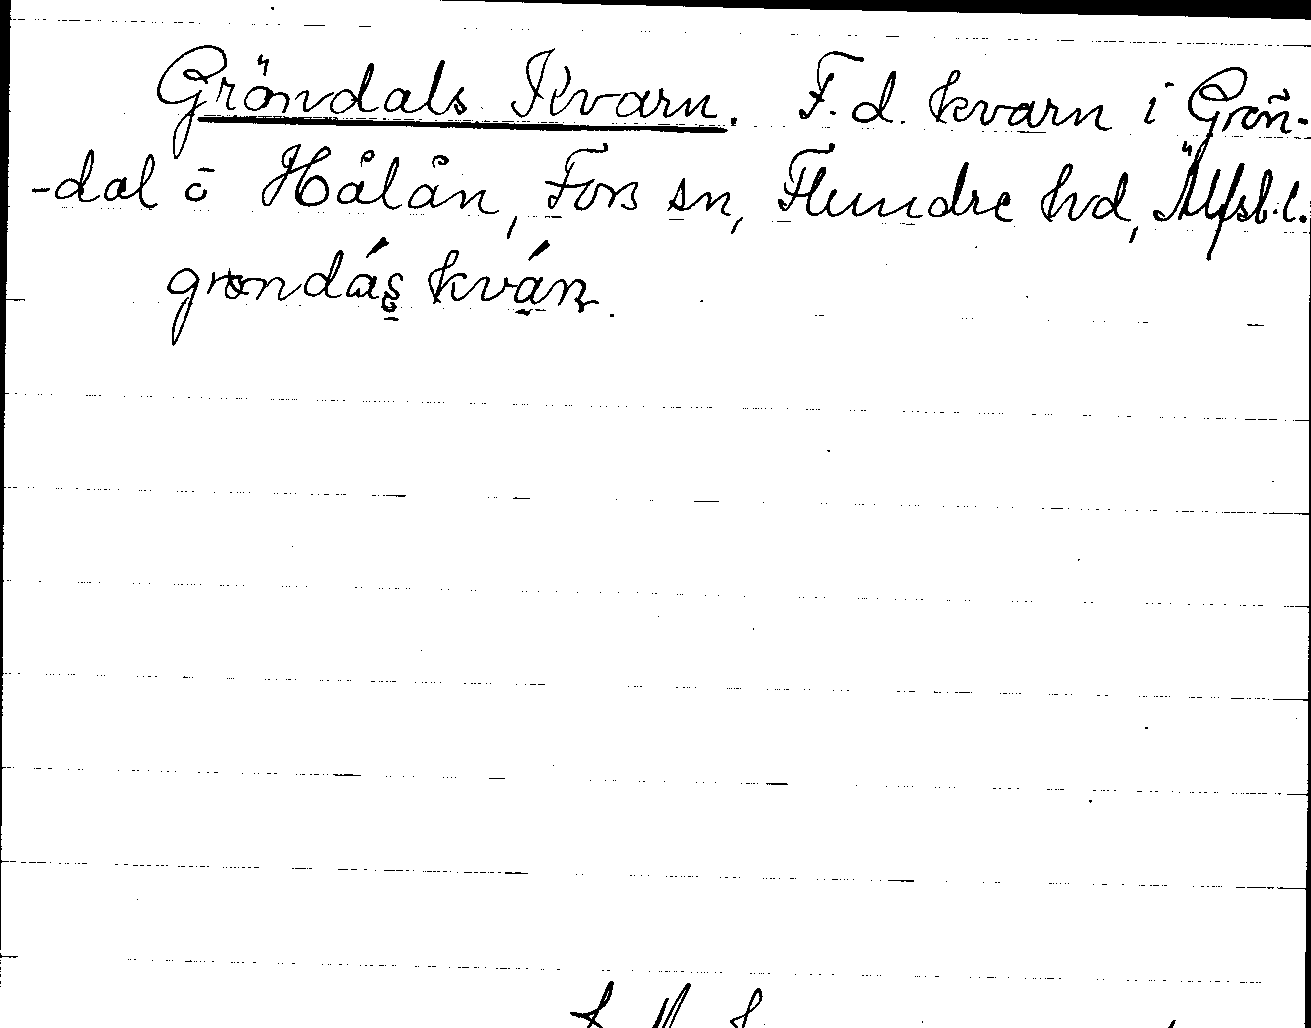 Gröndals Kvarn. F.d. kvarn i Grön-
-dal ö Hålån, Fors sn, Flundre hd, Älfsb.l.
grøndás kván.